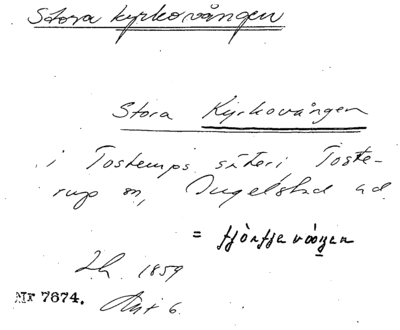 Stora kyrkovången
Stora Kyrkovången
i Tosterups säteri, Toste-
rup sn, Ingelstad hd.
=
Lh. 1859
Mr 7674. Akt 6.